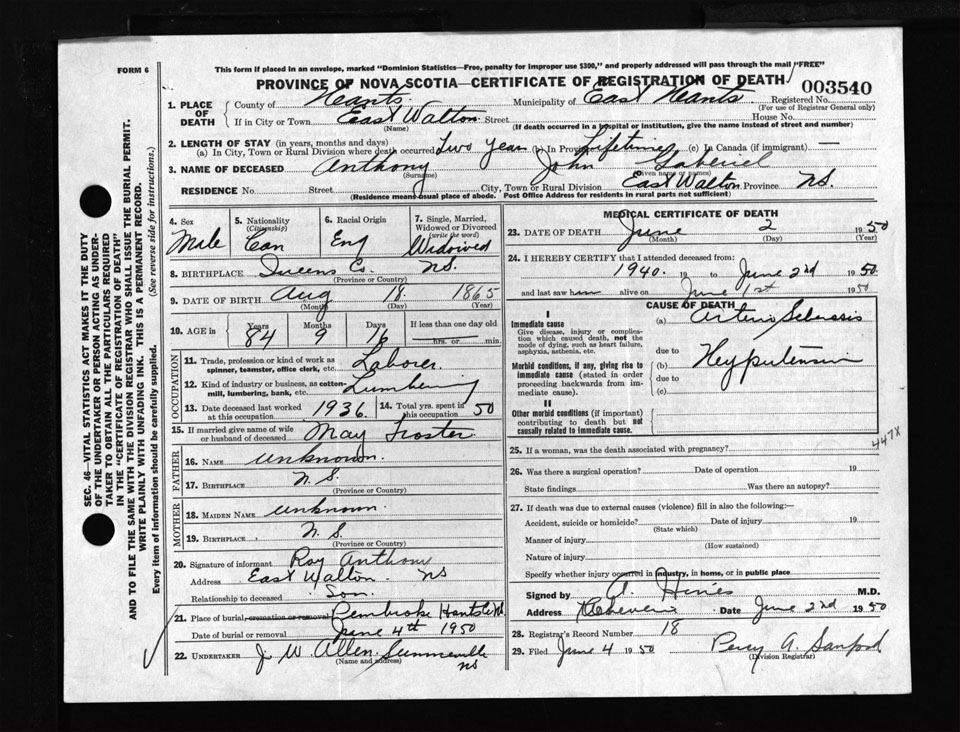 FORM 6
This form if placed in an envelope, marked "Dominion Statistics—Free, penalty for improper use $300," and properly addressed will pass through the mail "FREE"
PROVINCE OF NOVA SCOTIA—CERTIFICATE OF REGISTRATION OF DEATH
003540
1. PLACE OF DEATH County of Hants Municipality of East Hants Registered No.
(For use of Registrar General only)
If in City or Town East Walton Street House No.
(Name) (If death occurred in a hospital or institution, give the name instead of street and number)
2. LENGTH OF STAY (in years, months and days)
(a) In City, Town or Rural Division where death occurred Two Years (b) In Province Lifetime (c) In Canada (if immigrant) —
3. NAME OF DECEASED Anthony John Gaberiel
(Surname) (Given name or names)
RESIDENCE No. Street City, Town or Rural Division East Walton Province N.S.
(Residence means usual place of abode. Post Office Address for residents in rural parts not sufficient)
SEC. 46—VITAL STATISTICS ACT MAKES IT THE DUTY
OF THE UNDERTAKER OR PERSON ACTING AS UNDER-
TAKER TO OBTAIN ALL THE PARTICULARS REQUIRED
IN THE "CERTIFICATE OF REGISTRATION OF DEATH"
AND TO FILE THE SAME WITH THE DIVISION REGISTRAR WHO SHALL ISSUE THE BURIAL PERMIT.
WRITE PLAINLY WITH UNFADING INK. THIS IS A PERMANENT RECORD.
Every item of information should be carefully supplied. (See reverse side for instructions.)
4. Sex 5. Nationality (Citizenship) 6. Racial Origin 7. Single, Married, Widowed or Divorced (write the word)
Male Can Eng Widowed
8. BIRTHPLACE Queens Co. N.S.
(Province or Country)
9. DATE OF BIRTH Aug 18 1865
(Month) (Day) (Year)
10. AGE in Years Months Days If less than one day old
84 9 16 hrs. or min.
OCCUPATION
11. Trade, profession or kind of work as spinner, teamster, office clerk, etc. Laborer
12. Kind of industry or business, as cotton-mill, lumbering, bank, etc. Lumbering
13. Date deceased last worked at this occupation 1936 14. Total yrs. spent in this occupation 50
15. If married give name of wife or husband of deceased May Froster
FATHER
16. NAME unknown
17. BIRTHPLACE N.S.
(Province or Country)
MOTHER
18. MAIDEN NAME unknown
19. BIRTHPLACE N.S.
(Province or Country)
20. Signature of informant Roy Anthony
Address East Walton NS
Relationship to deceased Son
21. Place of burial, cremation or removal Pembroke Hants Co N.S.
Date of burial or removal June 4th 1950
22. UNDERTAKER J. W. Allen Summerville NS
(Name and address)
MEDICAL CERTIFICATE OF DEATH
23. DATE OF DEATH June 2 1950
(Month) (Day) (Year)
24. I HEREBY CERTIFY that I attended deceased from:
1940 19 to June 2nd 1950
and last saw him alive on June 1st 1950
CAUSE OF DEATH
I
Immediate cause
Give disease, injury or complication which caused death, not the mode of dying, such as heart failure, asphyxia, asthenia, etc.
(a) Arterio Sclerosis
due to
Morbid conditions, if any, giving rise to immediate cause (stated in order proceeding backwards from immediate cause).
(b) Heypertension
due to
(c)
II
Other morbid conditions (if important) contributing to death but not causally related to immediate cause.
447X
25. If a woman, was the death associated with pregnancy?
26. Was there a surgical operation? Date of operation 19
State findings Was there an autopsy?
27. If death was due to external causes (violence) fill in also the following:—
Accident, suicide or homicide? Date of injury 19
(State which)
Manner of injury
(How sustained)
Nature of injury
Specify whether injury occurred in industry, in home, or in public place
Signed by Hines M.D.
Address Date June 2nd 1950
28. Registrar's Record Number 18
29. Filed June 4 1950 Percy A. Sanford
(Division Registrar)